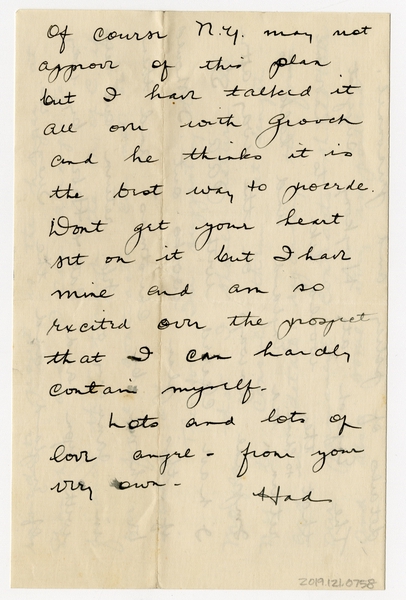 Of course N.Y. may not
approve of this plan
but I have talked it
all over with Grouch
and he thinks it is
the best way to procede.
Dont get your heart
set on it but I have
mine and am so
excited over the prospect
that I can hardly
contain myself.
Lots and lots of
love angel - from your
very own -
Had
2019.121.0758